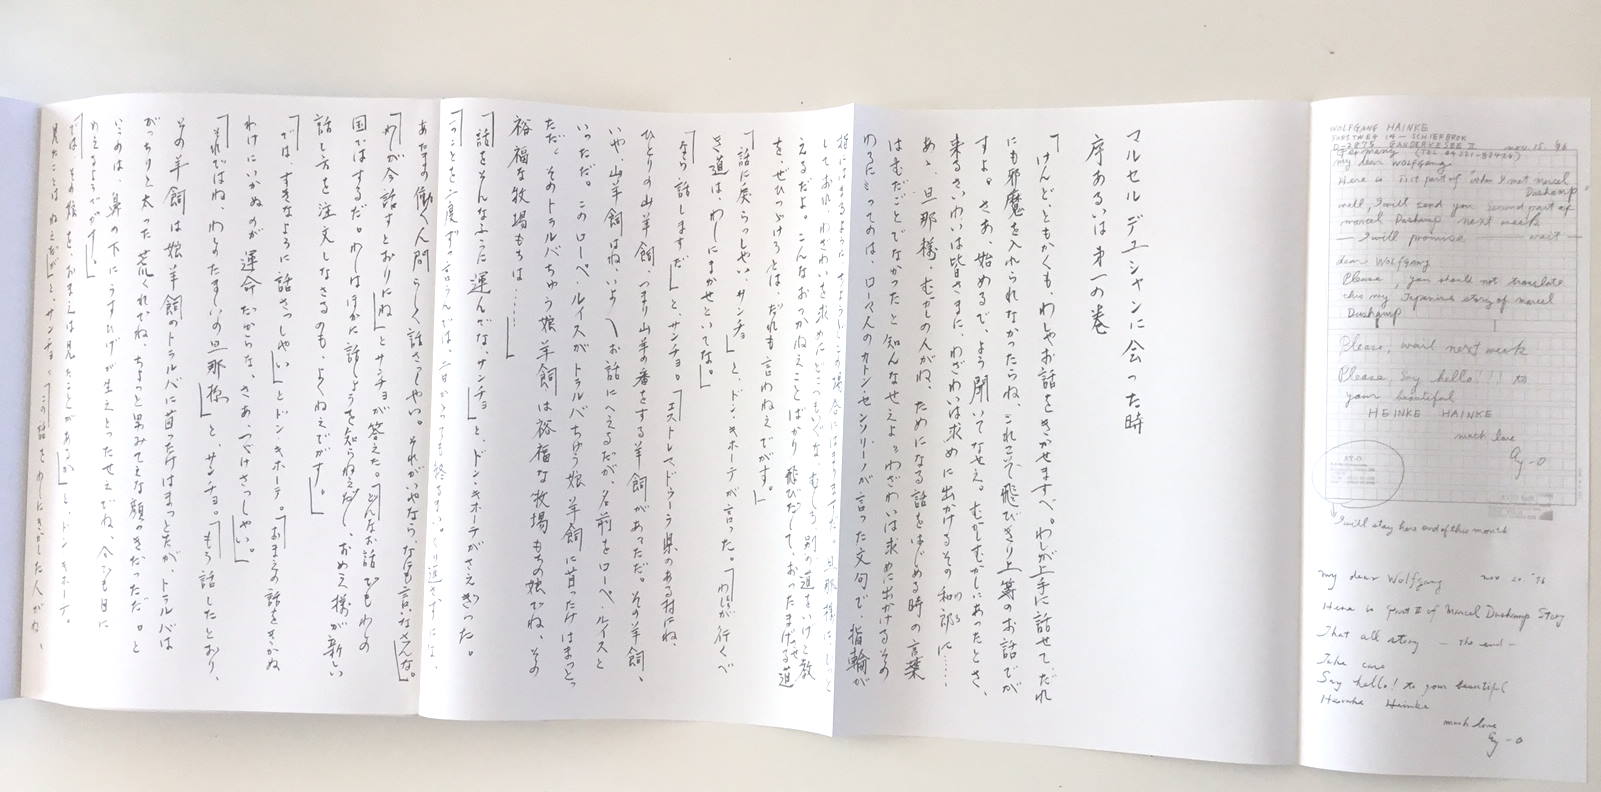 マルセルデュシャンに会った時
序あるいは第一の巻
「けんど、ともかくも、わしゃお話をきかせますべ。わしが上手に話せて、だれ
にも邪魔を入れられなかったらね、これこそ飛びきり上等のお話でが
すよ。さあ、始めるで、よう聞いてなせえ。むかしむかしにあったとさ、
来るさいわいは皆さまに、わざわいは求めに出かけるその和郎に……
あゝ、旦那様、むかしの人がね、ためになる話をはじめる時の言葉
はむだごとでなかったと知んなせえよ。わざわいは求めに出かけるその
わろにってのは、ローマ人のカトンセンソリーノが言った文句で、指輪が
指にはまるように、ちょうどこの場合にはまりますだ。旦那様にじっと
しておれ、わざわいを求めにどこへもゆくな、むしろ別の道をいけと教
えるだよ。こんなおっかねえことばかり飛びだして、おったまげちまう道
を、ぜひつづけろとは、だれも言わねえでがす。」
「話に戻らっしゃい、サンチョ」と、ドン・キホーテが言った。「わしが行くべ
き道は、わしにまかせといてな。」
「なら話しますだ」と、サンチョ。「エストレマドゥーラ県のある村にね、
ひとりの山羊飼、つまり山羊の番をする羊飼があっただ。その羊飼、
いや、山羊飼はね、いいか、お話にへえるだが、名前をローペ・ルイスと
いっただ。このローペ・ルイスがトラルバちゅう娘羊飼に首ったけはまっとっ
ただ。そのトラルバちゅう娘羊飼は裕福な牧場もちの娘でね、その
裕福な牧場もちは……」
「話をそんなふうに運んでな、サンチョ」と、ドン・キホーテがさえぎった。
「一つことを二度ずつ言うんでは、二日かかっても終るまい。くり返さずには、
あたまの働く人間らしく話さっしゃい。それがいやなら、なにも言いなさんな。」
「わしが今話すとおりにね」とサンチョが答えた。「どんなお話でもわしの
国ではするだ。わしはほかに話しようを知らねえだし、おめえ様が新しい
話し方を注文しなさるのも、よくねえでがす。」
「では、すきなように話さっしゃい」とドン・キホーテ。「おまえの話をきかぬ
わけにいかぬのが運命だからな、さあ、つづけさっしゃい。」
「それではね、わしのたましいの旦那様」と、サンチョ。「もう話したとおり、
その羊飼は娘羊飼のトラルバに首ったけはまっとたが、トラルバは
がっちりと太った荒くれでね、ちょっと男みてえな顔つきだっただ。と
いうのは、鼻の下にうすひげが生えとったせえでね、今でも目に
めえるようでがす。」
「では、その娘を、おまえは見たことがあるか」と、ドン・キホーテ。
「見たことはねえだが」と、サンチョ。「この話をわしにきかした人がね、
WOLFGANG HAINKE
D-2875 GANDERKESEE II nov. 15. 96
Germany (TEL 04221-82424)
my dear Wolfgang
Here is first part of "when I met marcel
Duchamp
well, I will send you second part of
marcel Duchamp next week
— I will promise — wait —
dear Wolfgang
Please, you should not translate
this my Japanese story of marcel
Duchamp
Please, wait next week
Please, say hello!!! to
your beautiful
HEINKE HAINKE
much love
ay-o
I will stay here end of this month
my dear Wolfgang nov 20. '96
Here is part II of Marcel Duchamp Story
That all story — the end —
Take care
Say hello! to your beautiful
Heinke Hainke
much love
ay-o